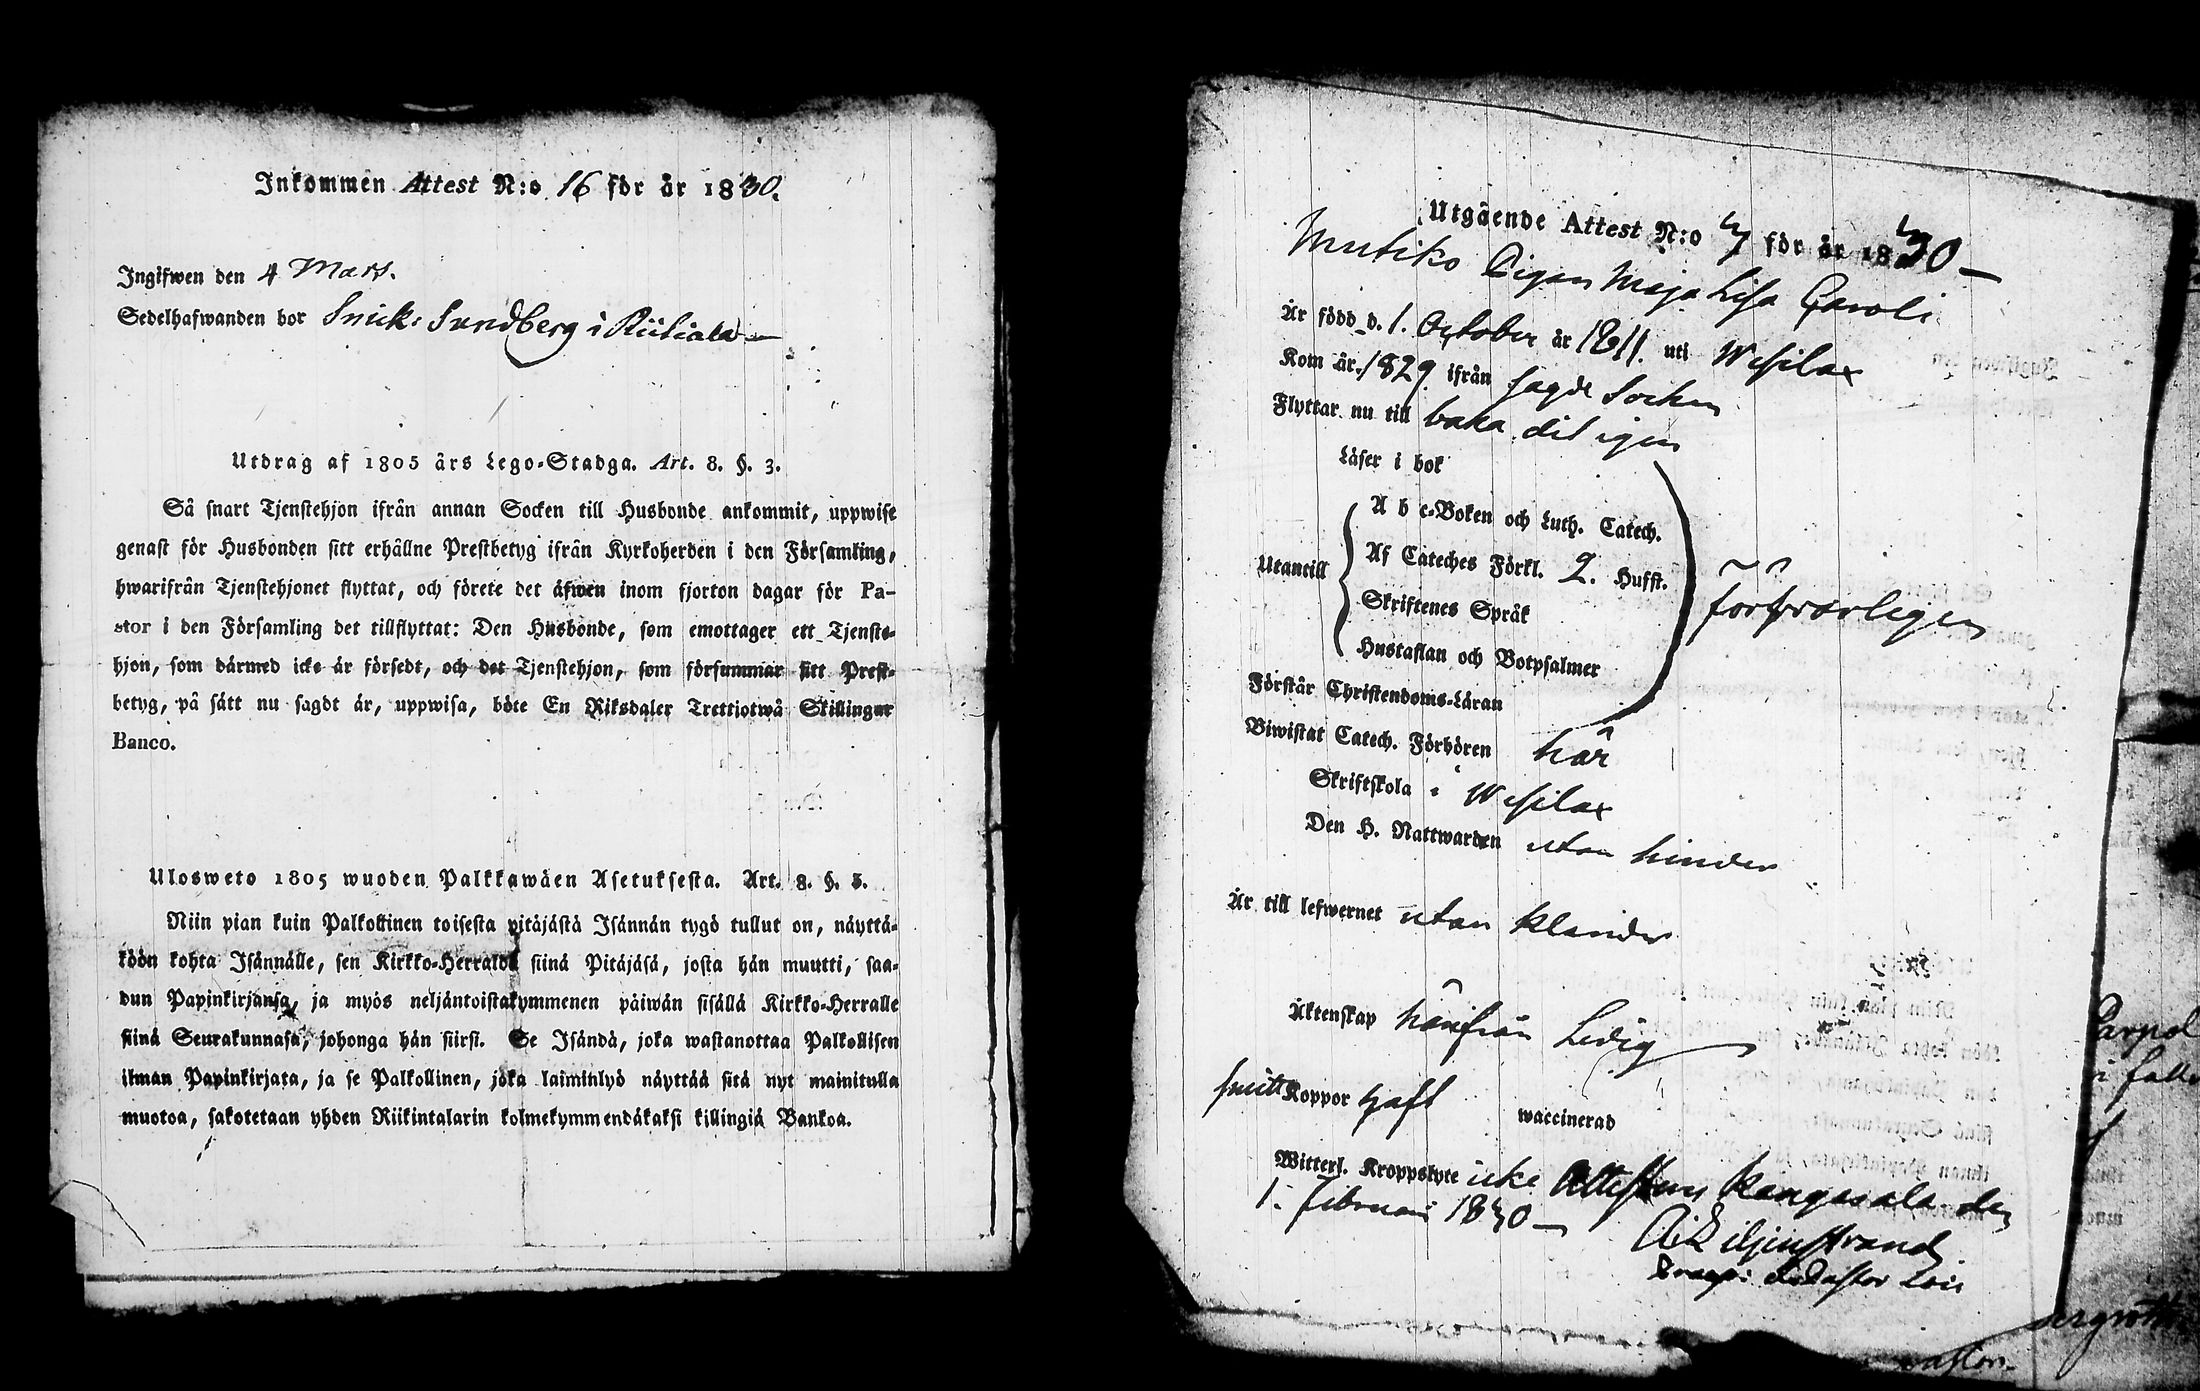 Inkommen Attest N:o 16 för år 1830.
Ingifwen den 4 Mars.
Sedelhafwanden bor Snick: Sundberg i
Utdrag af 1805 års Lego-Stadga. Art. 8. §. 3.
Så snart Tjenstehjon ifrån annan Socken till Husbonde ankommit, uppwise
genast för Husbonden sitt erhållne Prestbetyg ifrån Kyrkoherden i den Församling,
hwarifrån Tjenstehjonet flyttat, och förete det äfwen inom fjorton dagar för Pa-
stor i den Församling det tillflyttat: Den Husbonde, som emottager ett Tjenste-
hjon, som därmed icke är försedt, och det Tjenstehjon, som försummar sitt Prest-
betyg, på sätt nu sagdt är, uppwisa, böte En Riksdaler Trettiotwå Skillingar
Banco.
Ulosweto 1805 wuoden Palkkawäen Asetuksesta. Art. 8. §. 3.
Niin pian kuin Palkollinen toisesta pitäjästä Isännän tygö tullut on, näyttä-
köön kohta Isännälle, sen Kirkko-Herralda siinä Pitäjäsä, josta hän muutti, saa-
dun Papinkirjansa, ja myös neljäntoistakymmenen päiwän sisällä Kirkko-Herralle
siinä Seurakunnasa, johonga hän siirsi. Se Isändä, joka wastanottaa Palkollisen
ilman Papinkirjata, ja se Palkollinen, joka laiminlyö näyttää sitä nyt mainitulla
muotoa, sakotetaan yhden Riikintalarin kolmekymmendäkaksi killingiä Bankoa.
Utgående Attest N:o 7 för år 1830
Pigan Maja Lisa Caroli
Är född d. 1. October år 1811. uti Wesilax
Kom år 1829 ifrån sagde Socken
Flyttar nu till baka dit igen
Läser i bok
A b c-Boken och Luth. Catech.
Utantill Af Cateches Förkl. 2. Hufst.
Skriftenes Språk
Hustaflan och Botpsalmer
försvarligen
Förstår Christendoms-Läran
Biwistat Catech. Förhören här
Skriftskola i Wesilax
Den H. Nattwarden utan hinder
Är till lefwernet utan klander
Äktenskap härifrån Ledig
Koppor haft waccinerad
Witterl. Kroppslyte icke Attesteras Kangasala den
1. Februari 1830